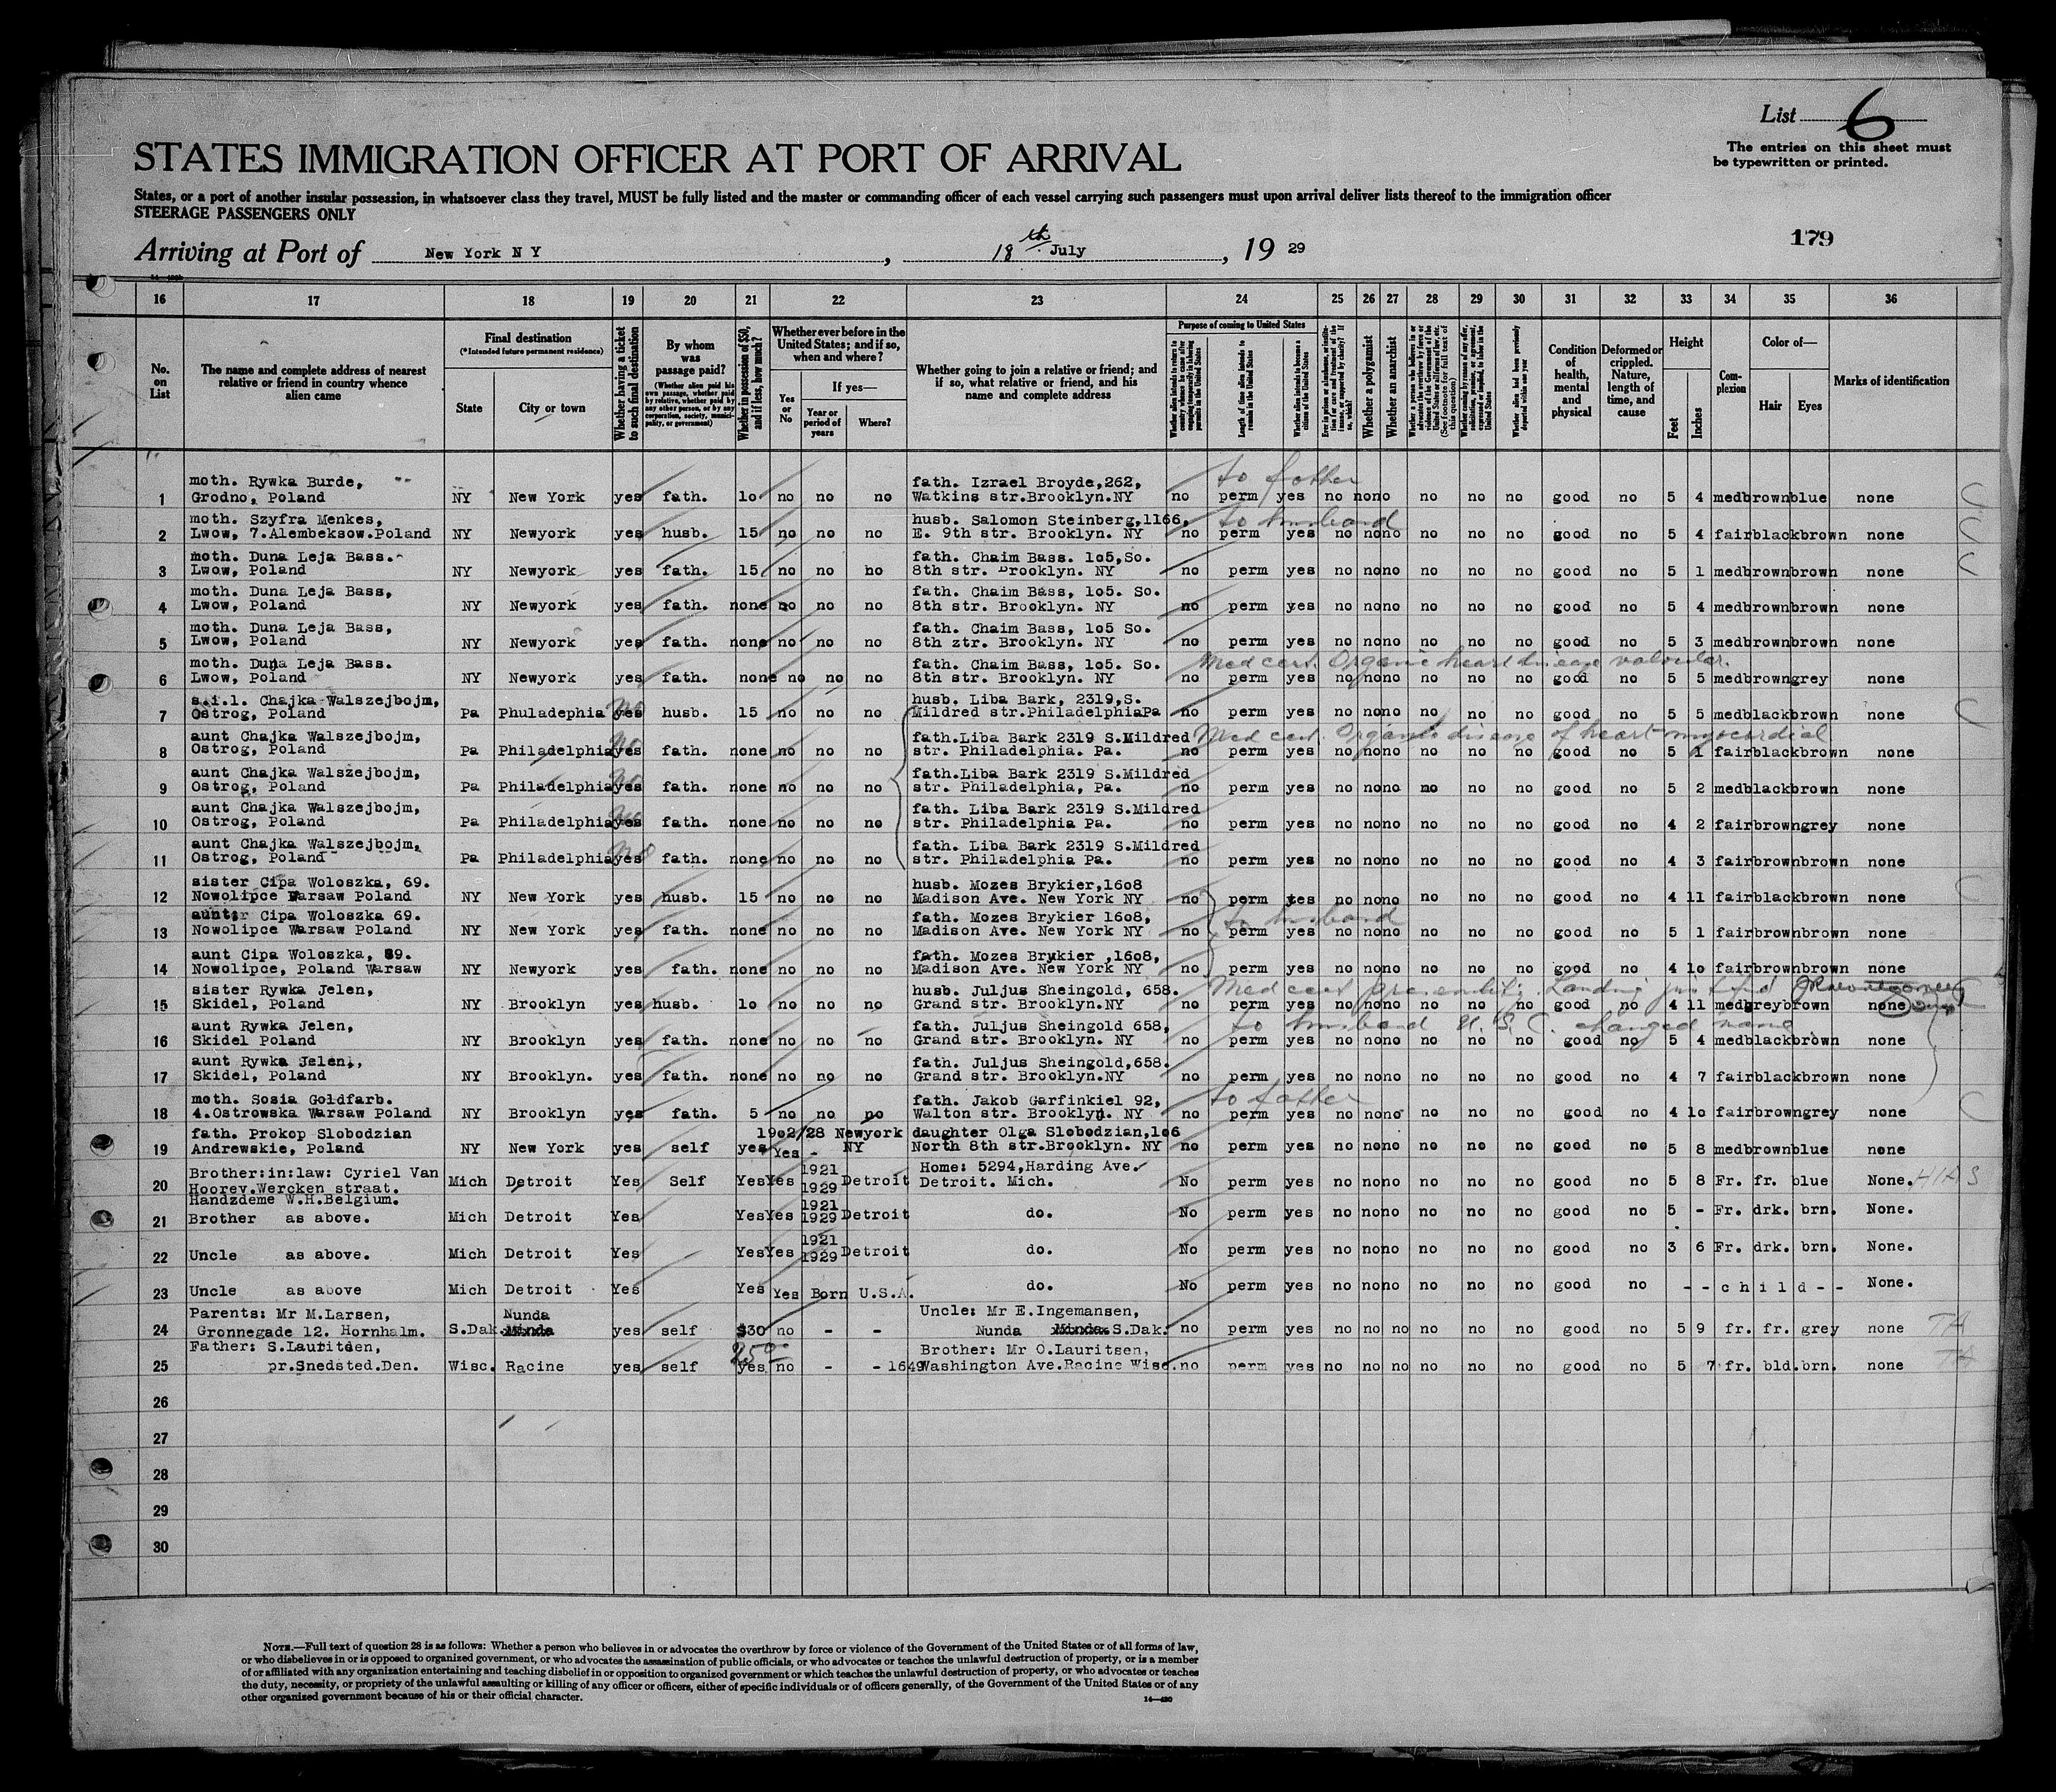 List 6
The entries on this sheet must
be typewritten or printed.
STATES IMMIGRATION OFFICER AT PORT OF ARRIVAL
States, or a port of another insular possession, in whatsoever class they travel, MUST be fully listed and the master or commanding officer of each vessel carrying such passengers must upon arrival deliver lists thereof to the immigration officer
STEERAGE PASSENGERS ONLY
179
Arriving at Port of New York N Y, 18th July, 19 29
16 17 18 19 20 21 22 23 24 25 26 27 28 29 30 31 32 33 34 35 36
No. on List
The name and complete address of nearest relative or friend in country whence alien came
Final destination
(*Intended future permanent residence)
State
City or town
Whether having a ticket to such final destination
By whom was passage paid?
(Whether alien paid his own passage, whether paid by relative, whether paid by any other person, or by any corporation, society, municipality, or government)
Whether in possession of $50, and if less, how much?
Whether ever before in the United States; and if so, when and where?
Yes or No
If yes—
Year or period of years
Where?
Whether going to join a relative or friend; and if so, what relative or friend, and his name and complete address
Purpose of coming to United States
Length of time alien intends to remain in the United States
Whether alien intends to become a citizen of the United States
Whether a polygamist
Whether an anarchist
Condition of health, mental and physical
Deformed or crippled. Nature, length of time, and cause
Height
Feet
Inches
Complexion
Color of—
Hair
Eyes
Marks of identification
to father
moth. Rywka Burde, father. Izrael Broyde,262,
1 Grodno, Poland NY New York yes fath. 1o no no no Watkins str.Brooklyn.NY no perm yes no nono no no no good no 5 4 medbrownblue none
moth. Szyfra Menkes, husb. Salomon Steinberg,1166, to husband
2 Lwow, 7.Alembeksow.Poland NY Newyork yes husb. 15 no no no E. 9th str. Brooklyn. NY no perm yes no nono no no no good no 5 4 fairblackbrown none
moth. Duna Leja Bass. fath. Chaim Bass. 1o5,So.
3 Lwow, Poland NY Newyork yes fath. 15 no no no 8th str. Brooklyn. NY no perm yes no nono no no no good no 5 1 medbrownbrown none
moth. Duna Leja Bass, fath. Chaim Bass, 1o5. So.
4 Lwow, Poland NY Newyork yes fath. none no no no 8th str. Brooklyn. NY no perm yes no nono no no no good no 5 4 medbrownbrown none
moth. Duna Leja Bass, fath. Chaim Bass, 1o5 So.
5 Lwow, Poland NY Newyork yes fath. none no no no 8th ztr. Brooklyn. NY no perm yes no nono no no no good no 5 3 medbrownbrown none
moth. Duna Leja Bass. fath. Chaim Bass, 1o5. So. Med cert. Organic heart disease valvular.
6 Lwow, Poland NY Newyork yes fath. none no no no 8th str. Brooklyn. NY no perm yes no nono no no no good no 5 5 medbrowngrey none
s.i.l. Chajka Walszejbojm, husb. Liba Bark, 2319,S.
7 Ostrog, Poland Pa Phuladephia yes no husb. 15 no no no Mildred str.PhiladelphiaPa no perm yes no nono no no no good no 5 5 medblackbrown none
aunt Chajka Walszejbojm, fath.Liba Bark 2319 S.Mildred Med cert. Organic disease of heart myocardial
8 Ostrog, Poland Pa Philadelphia yes no fath. none no no no str. Philadelphia. Pa. no perm yes no nono no no no good no 5 1 fairblackbrown none
aunt Chajka Walszejbojm, fath.Liba Bark 2319 S.Mildred
9 Ostrog, Poland Pa Philadelphia yes no fath. none no no no str. Philadelphia, Pa. no perm yes no nono no no no good no 5 2 medblackbrown none
aunt Chajka Walszejbojm, fath. Liba Bark 2319 S.Mildred
10 Ostrog, Poland Pa Philadelphia yes no fath. none no no no str. Philadelphia Pa. no perm yes no nono no no no good no 4 2 fairbrowngrey none
aunt Chajka Walszejbojm, fath. Liba Bark 2319 S.Mildred
11 Ostrog, Poland Pa Philadelphia yes no fath. none no no no str. Philadelphia Pa. no perm yes no nono no no no good no 4 3 fairbrownbrown none
sister Cipa Woloszka, 69. husb. Mozes Brykier,16o8
12 Nowolipce Warsaw Poland NY New York yes husb. 15 no no no Madison Ave. New York NY no perm yes no nono no no no good no 4 11 fairblackbrown none
aunt Cipa Woloszka 69. fath. Mozes Brykier 16o8, to husband
13 Nowolipce Warsaw Poland NY New York yes fath. none no no no Madison Ave. New York NY no perm yes no nono no no no good no 5 1 fairbrownbrown none
aunt Cipa Woloszka, 69. fath. Mozes Brykier ,16o8,
14 Nowolipce, Poland Warsaw NY Newyork yes fath. none no no no Madison Ave. New York NY no perm yes no nono no no no good no 4 1o fairbrownbrown none
sister Rywka Jelen, husb. Juljus Sheingold, 658. Med cert
15 Skidel, Poland NY Brooklyn yes husb. 1o no no no Grand str. Brooklyn.NY no perm yes no nono no no no good no 4 11 medgreybrown none
aunt Rywka Jelen, fath. Juljus Sheingold 658, to husband U.S.C. changed name
16 Skidel Poland NY Brooklyn yes fath. none no no no Grand str. Brooklyn. NY no perm yes no nono no no no good no 5 4 medblackbrown none
aunt Rywka Jelen., fath. Juljus Sheingold,658.
17 Skidel, Poland NY Brooklyn. yes fath. none no no no Grand str. Brooklyn.NY no perm yes no nono no no no good no 4 7 fairblackbrown none
moth. Sosia Goldfarb. fath. Jakob Garfinkiel 92, to father
18 4.Ostrowska Warsaw Poland NY Brooklyn yes fath. 5 no no no Walton str. Brooklyn. NY no perm yes no nono no no no good no 4 1o fairbrowngrey none
fath. Prokop Slobodzian 19o2/28 Newyork daughter Olga Slobodzian,1o6
19 Andrewskie, Poland NY New York yes self yes Yes - NY North 8th str.Brooklyn. NY no perm yes no nono no no no good no 5 8 medbrownblue none
Brother:in:law: Cyriel Van 1921 Home: 5294,Harding Ave.
20 Hoorev.Wercken straat. Mich Detroit Yes Self Yes Yes 1929 Detroit Detroit. Mich. No perm yes no nono no no no good no 5 8 Fr. fr. blue None. HIAS
Handzdeme W.H.Belgium. 1921
21 Brother as above. Mich Detroit Yes Yes Yes 1929 Detroit do. No perm yes no nono no no no good no 5 - Fr. drk. brn. None.
1921
22 Uncle as above. Mich Detroit Yes - Yes Yes 1929 Detroit do. No perm yes no nono no no no good no 3 6 Fr. drk. brn. None.
23 Uncle as above Mich Detroit Yes Yes Yes Born U.S.A. do. No perm yes no nono no no no good no - - c h i l d - - None.
Parents: Mr M.Larsen, Nunda Uncle: Mr E.Ingemansen,
24 Gronnegade 12. Hornhalm. S.Dak. Minda yes self $30 no - - Nunda Minda S.Dak. no perm yes no nono no no no good no 5 9 fr. fr. grey none TA
Father: S.Lauritden, 25 Brother: Mr O.Lauritsen,
25 pr.Snedsted.Den. Wisc. Racine yes self yes no - - 1649 Washington Ave.Racine Wisc. no perm yes no no no no no no good no 5 7 fr. bld.brn. none TA
26
27
28
29
30
NOTE.—Full text of question 28 is as follows: Whether a person who believes in or advocates the overthrow by force or violence of the Government of the United States or of all forms of law,
or who disbelieves in or is opposed to organized government, or who advocates the assassination of public officials, or who advocates or teaches the unlawful destruction of property, or is a member
of or affiliated with any organization entertaining and teaching disbelief in or opposition to organized government or which teaches the unlawful destruction of property, or who advocates or teaches
the duty, necessity, or propriety of the unlawful assaulting or killing of any officer or officers, either of specific individuals or of officers generally, of the Government of the United States or of any
other organized government because of his or their official character.
14—420